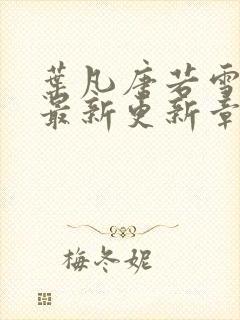 葉凡唐若雪
最新更新章
梅冬妮